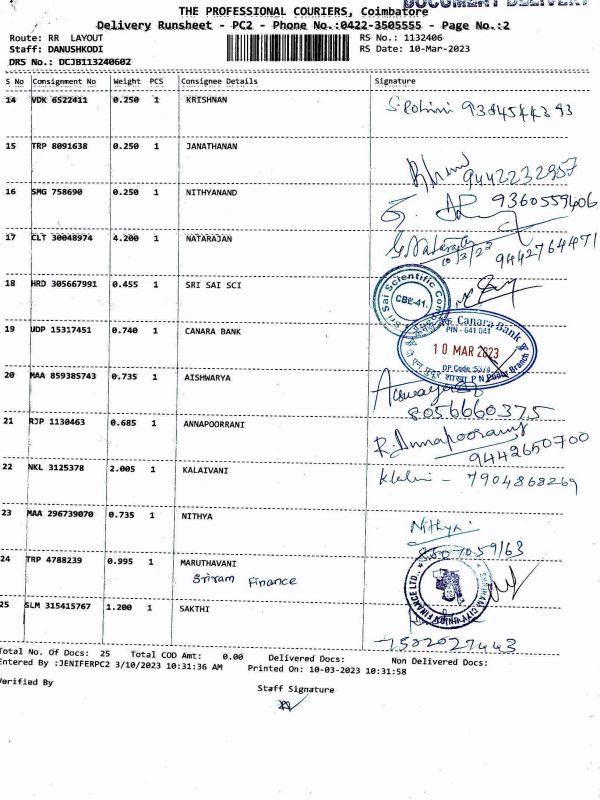 DOCUMENT DELIVERY
THE PROFESSIONAL COURIERS, Coimbatore
Delivery Runsheet - PC2 - Phone No.:0422-3505555 - Page No.:2
Route: RR LAYOUT RS No.: 1132406
Staff: DANUSHKODI RS Date: 10-Mar-2023
DRS No.: DCJB113240602
S No Consignment No Weight PCS Consignee Details Signature
14 VDK 6522411 0.250 1 KRISHNAN
15 TRP 8091638 0.250 1 JANATHANAN
9442232957
16 SMG 758690 0.250 1 NITHYANAND
9360559406
17 CLT 30048974 4.200 1 NATARAJAN
10/3/23 9442764471
18 HRD 305667991 0.455 1 SRI SAI SCI
Sri Sai Scientific
CBE-41.
19 UDP 15317451 0.740 1 CANARA BANK
Canara Bank
PIN - 641 041
10 MAR 2023
DP Code
Branch
20 MAA 859385743 0.735 1 AISHWARYA
8056660375
21 RJP 1130463 0.685 1 ANNAPOORRANI
R. Annapoorani
9442650700
22 NKL 3125378 2.005 1 KALAIVANI
7904868269
23 MAA 296739070 0.735 1 NITHYA
Nithya
24 TRP 4788239 0.995 1 MARUTHAVANI
Sriram Finance
FINANCE LTD.
25 SLM 315415767 1.200 1 SAKTHI
7502027443
Total No. Of Docs: 25 Total COD Amt: 0.00 Delivered Docs: Non Delivered Docs:
Entered By :JENIFERPC2 3/10/2023 10:31:36 AM Printed On: 10-03-2023 10:31:58
Verified By
Staff Signature